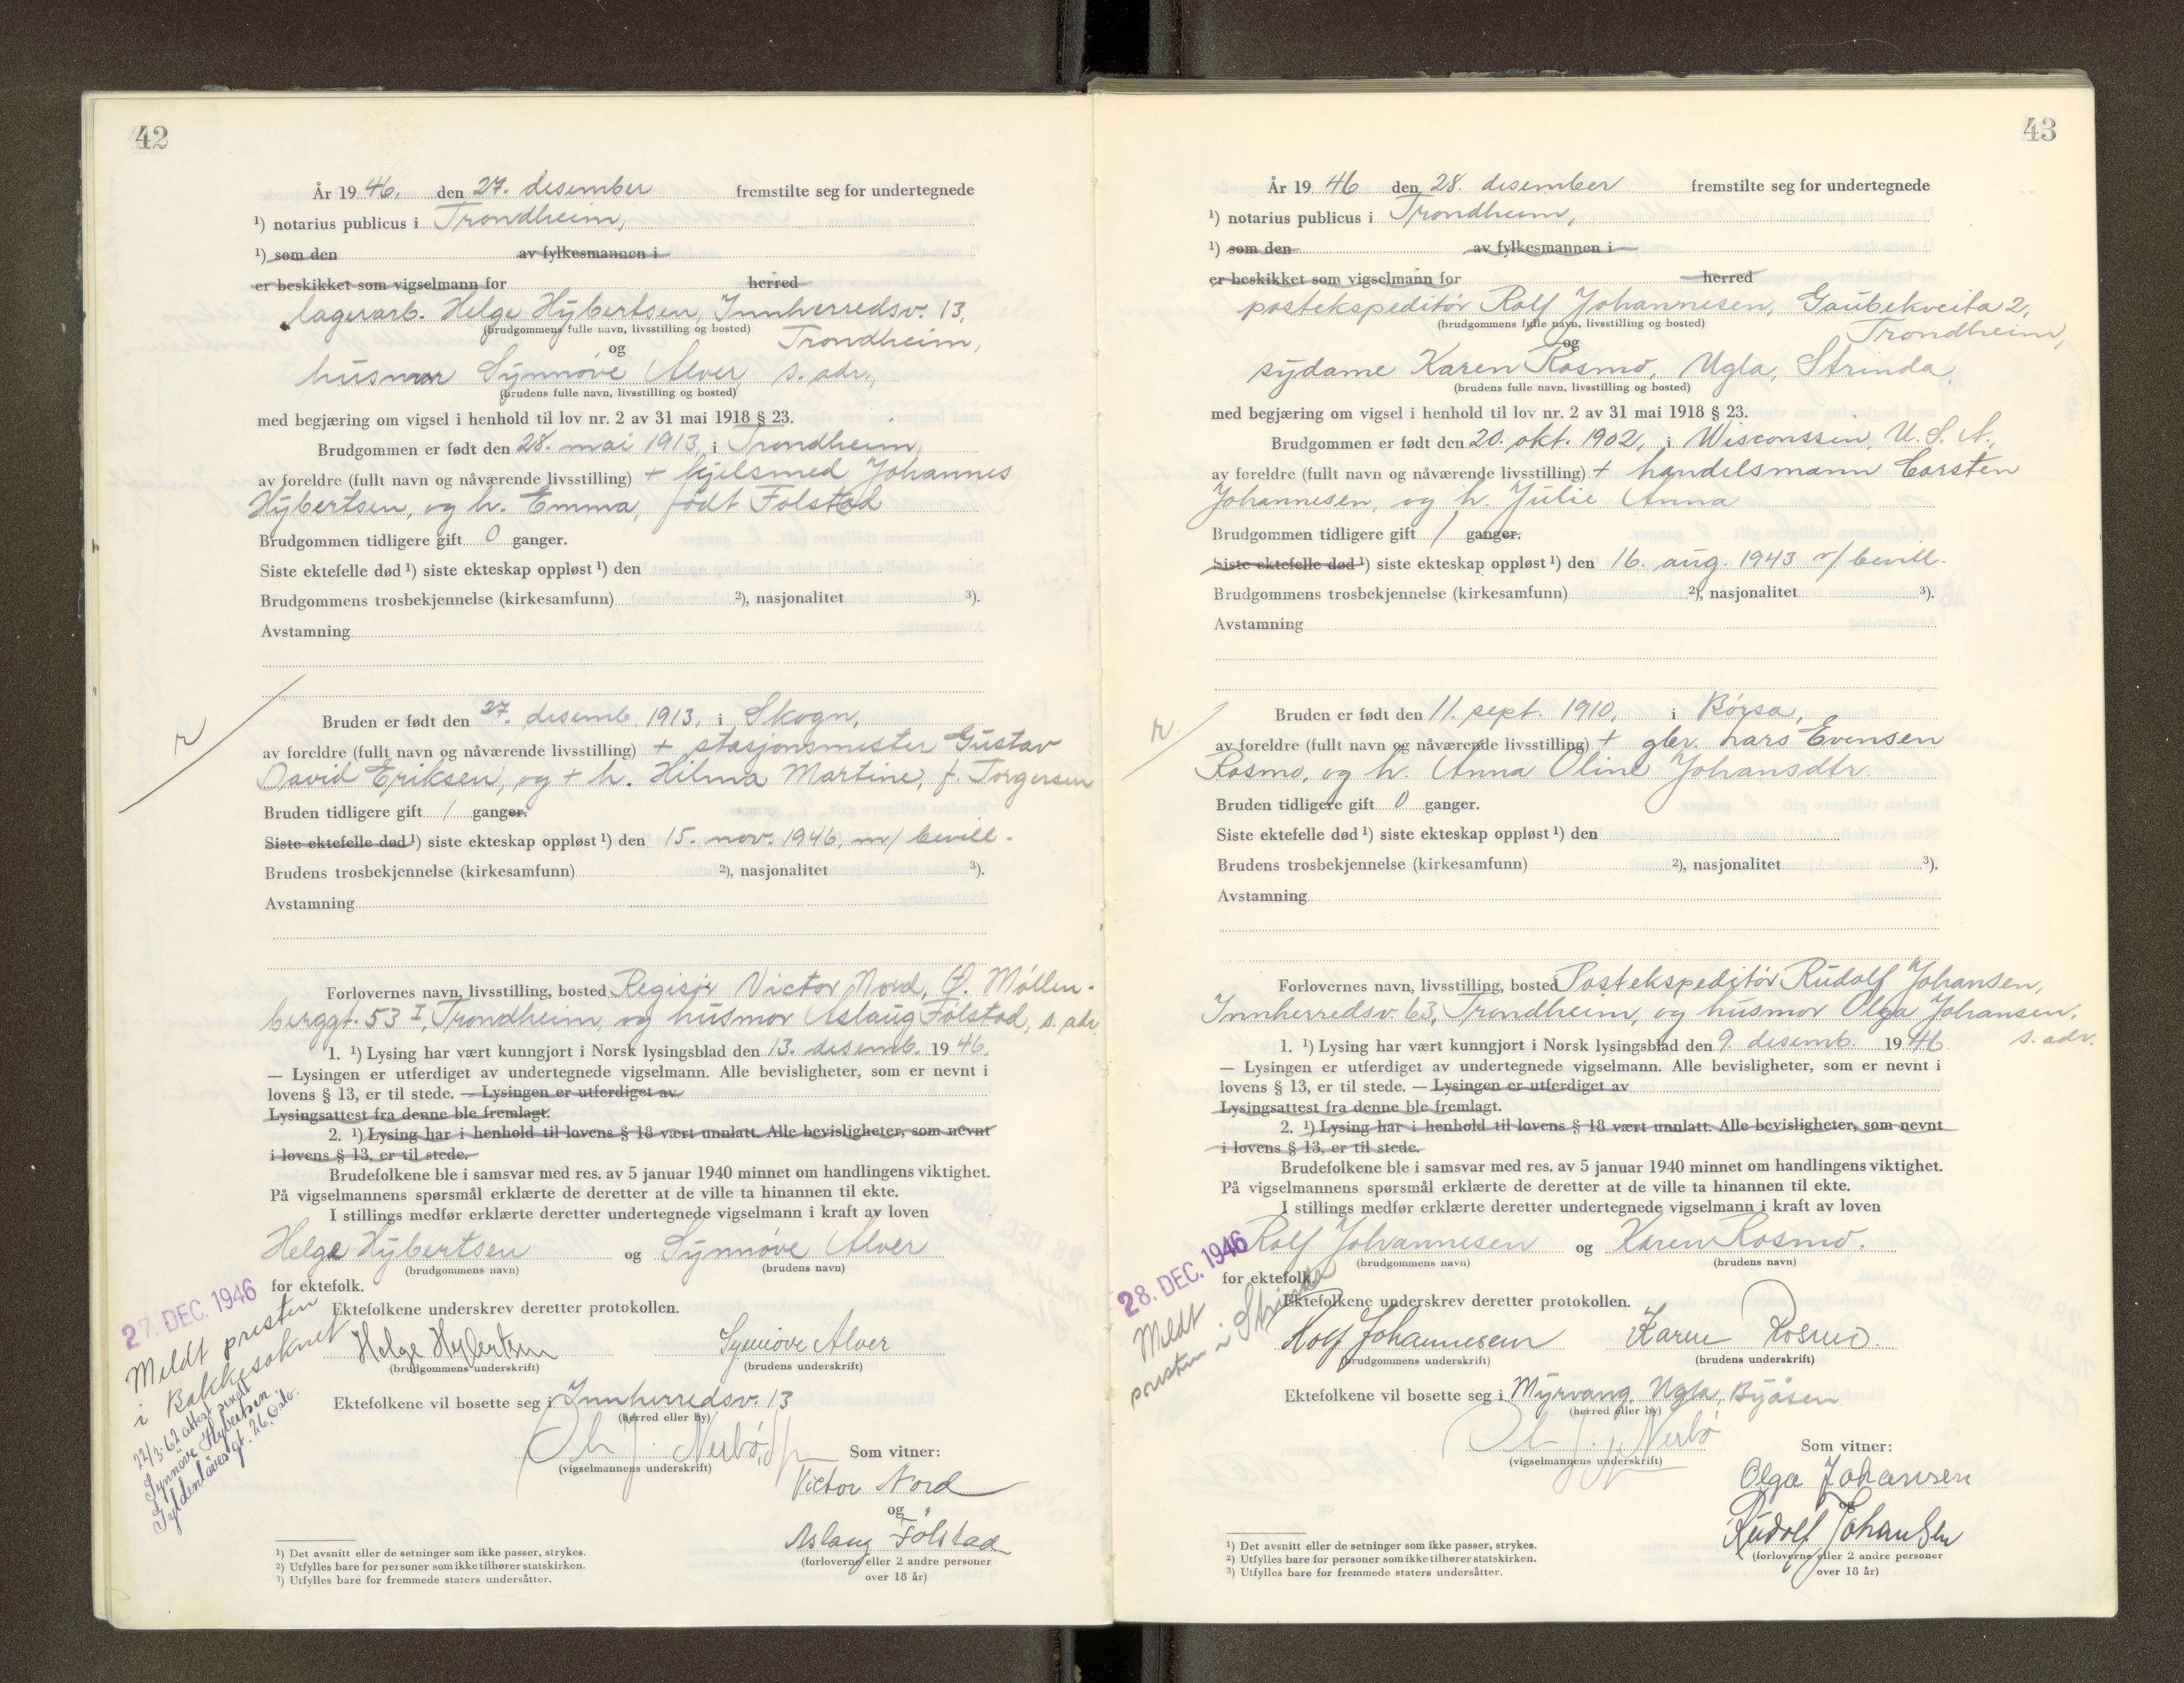 42
År 1946. den 27. desember fremstilte seg for undertegnede
¹) notarius publicus i Trondheim,
¹) som den av fylkesmannen i
er beskikket som vigselmann for herred
lagerarb. Helge Hybertsen, Innherredsv. 13,
(brudgommens fulle navn, livsstilling og bosted)
Trondheim,
og
husmor Synnøve Alver, s. adr.,
(brudens fulle navn, livsstilling og bosted)
med begjæring om vigsel i henhold til lov nr. 2 av 31 mai 1918 § 23.
Brudgommen er født den 28. mai 1913, i Trondheim,
av foreldre (fullt navn og nåværende livsstilling) + kjelsmed Johannes
Hybertsen, og h. Emma, født Følstad
Brudgommen tidligere gift 0 ganger.
Siste ektefelle død ¹) siste ekteskap oppløst ¹) den
Brudgommens trosbekjennelse (kirkesamfunn) ²), nasjonalitet ³).
Avstamning
r
Bruden er født den 27. desemb. 1913, i Skogn,
av foreldre (fullt navn og nåværende livsstilling) + stasjonsmester Gustav
David Eriksen, og + h. Hilma Martine, f. Torgersen
Bruden tidligere gift 1 ganger.
Siste ektefelle død ¹) siste ekteskap oppløst ¹) den 15. nov. 1946, m/ bevill.
Brudens trosbekjennelse (kirkesamfunn) ²), nasjonalitet ³).
Avstamning
Forlovernes navn, livsstilling, bosted Regisjr Victor Nord, Ø. Møllen-
berggt. 53 I, Trondheim, og husmor Aslaug Følstad, s. adr.
1. ¹) Lysing har vært kunngjort i Norsk lysingsblad den 13. desemb. 1946.
— Lysingen er utferdiget av undertegnede vigselmann. Alle bevisligheter, som er nevnt i
lovens § 13, er til stede. — Lysingen er utferdiget av
Lysingsattest fra denne ble fremlagt.
2. ¹) Lysing har i henhold til lovens § 18 vært unnlatt. Alle bevisligheter, som nevnt
i lovens § 13, er til stede.
Brudefolkene ble i samsvar med res. av 5 januar 1940 minnet om handlingens viktighet.
På vigselmannens spørsmål erklærte de deretter at de ville ta hinannen til ekte.
I stillings medfør erklærte deretter undertegnede vigselmann i kraft av loven
Helge Hybertsen og Synnøve Alver
(brudgommens navn) (brudens navn)
for ektefolk.
27. DEC. 1946
Meldt presten
i Bakkesoknet
22/3-62 attest sendt
Synnøve Hybertsen
Gyldenløvesgt. 26. Oslo.
Ektefolkene underskrev deretter protokollen.
Helge Hybertsen Synnøve Alver
(brudgommens underskrift) (brudens underskrift)
Ektefolkene vil bosette seg i Innherredsv. 13
(herred eller by)
(vigselmannens underskrift)
Som vitner:
Victor Nord
og
Aslaug Følstad
(forloverne eller 2 andre personer
over 18 år)
¹) Det avsnitt eller de setninger som ikke passer, strykes.
²) Utfylles bare for personer som ikke tilhører statskirken.
³) Utfylles bare for fremmede staters undersåtter.
43
År 1946 den 28. desember fremstilte seg for undertegnede
¹) notarius publicus i Trondheim,
¹) som den av fylkesmannen i
er beskikket som vigselmann for herred
postekspeditør Rolf Johannesen, Gaubekveita 2,
(brudgommens fulle navn, livsstilling og bosted)
Trondheim,
og
sydame Karen Rosmo, Ugla, Strinda
(brudens fulle navn, livsstilling og bosted)
med begjæring om vigsel i henhold til lov nr. 2 av 31 mai 1918 § 23.
Brudgommen er født den 20. okt. 1902, i Wisconssen, U.S.A.,
av foreldre (fullt navn og nåværende livsstilling) + handelsmann Carsten
Johannesen, og h. Julie Anna
Brudgommen tidligere gift 1 ganger.
Siste ektefelle død ¹) siste ekteskap oppløst ¹) den 16. aug. 1943 v/ bevill.
Brudgommens trosbekjennelse (kirkesamfunn) ²), nasjonalitet ³).
Avstamning
r.
Bruden er født den 11. sept. 1910, i Børsa,
av foreldre (fullt navn og nåværende livsstilling) + gbr. Lars Evensen
Rosmo, og h. Anna Oline Johansdtr.
Bruden tidligere gift 0 ganger.
Siste ektefelle død ¹) siste ekteskap oppløst ¹) den
Brudens trosbekjennelse (kirkesamfunn) ²), nasjonalitet ³).
Avstamning
Forlovernes navn, livsstilling, bosted Postekspeditør Rudolf Johansen,
Innherredsv. 63, Trondheim, og husmor Olga Johansen,
s. adr.
1. ¹) Lysing har vært kunngjort i Norsk lysingsblad den 9. desemb. 1946
— Lysingen er utferdiget av undertegnede vigselmann. Alle bevisligheter, som er nevnt i
lovens § 13, er til stede. — Lysingen er utferdiget av
Lysingsattest fra denne ble fremlagt.
2. ¹) Lysing har i henhold til lovens § 18 vært unnlatt. Alle bevisligheter, som nevnt
i lovens § 13, er til stede.
Brudefolkene ble i samsvar med res. av 5 januar 1940 minnet om handlingens viktighet.
På vigselmannens spørsmål erklærte de deretter at de ville ta hinannen til ekte.
I stillings medfør erklærte deretter undertegnede vigselmann i kraft av loven
Rolf Johannesen og Karen Rosmo.
(brudgommens navn) (brudens navn)
for ektefolk.
28. DEC. 1946
Meldt
presten i Strinda
Ektefolkene underskrev deretter protokollen.
Rolf Johannesen Karen Rosmo.
(brudgommens underskrift) (brudens underskrift)
Ektefolkene vil bosette seg i Myrvang, Ugla, Byåsen
(herred eller by)
(vigselmannens underskrift)
Som vitner:
Olga Johansen
og
Rudolf Johansen
(forloverne eller 2 andre personer
over 18 år)
¹) Det avsnitt eller de setninger som ikke passer, strykes.
²) Utfylles bare for personer som ikke tilhører statskirken.
³) Utfylles bare for fremmede staters undersåtter.